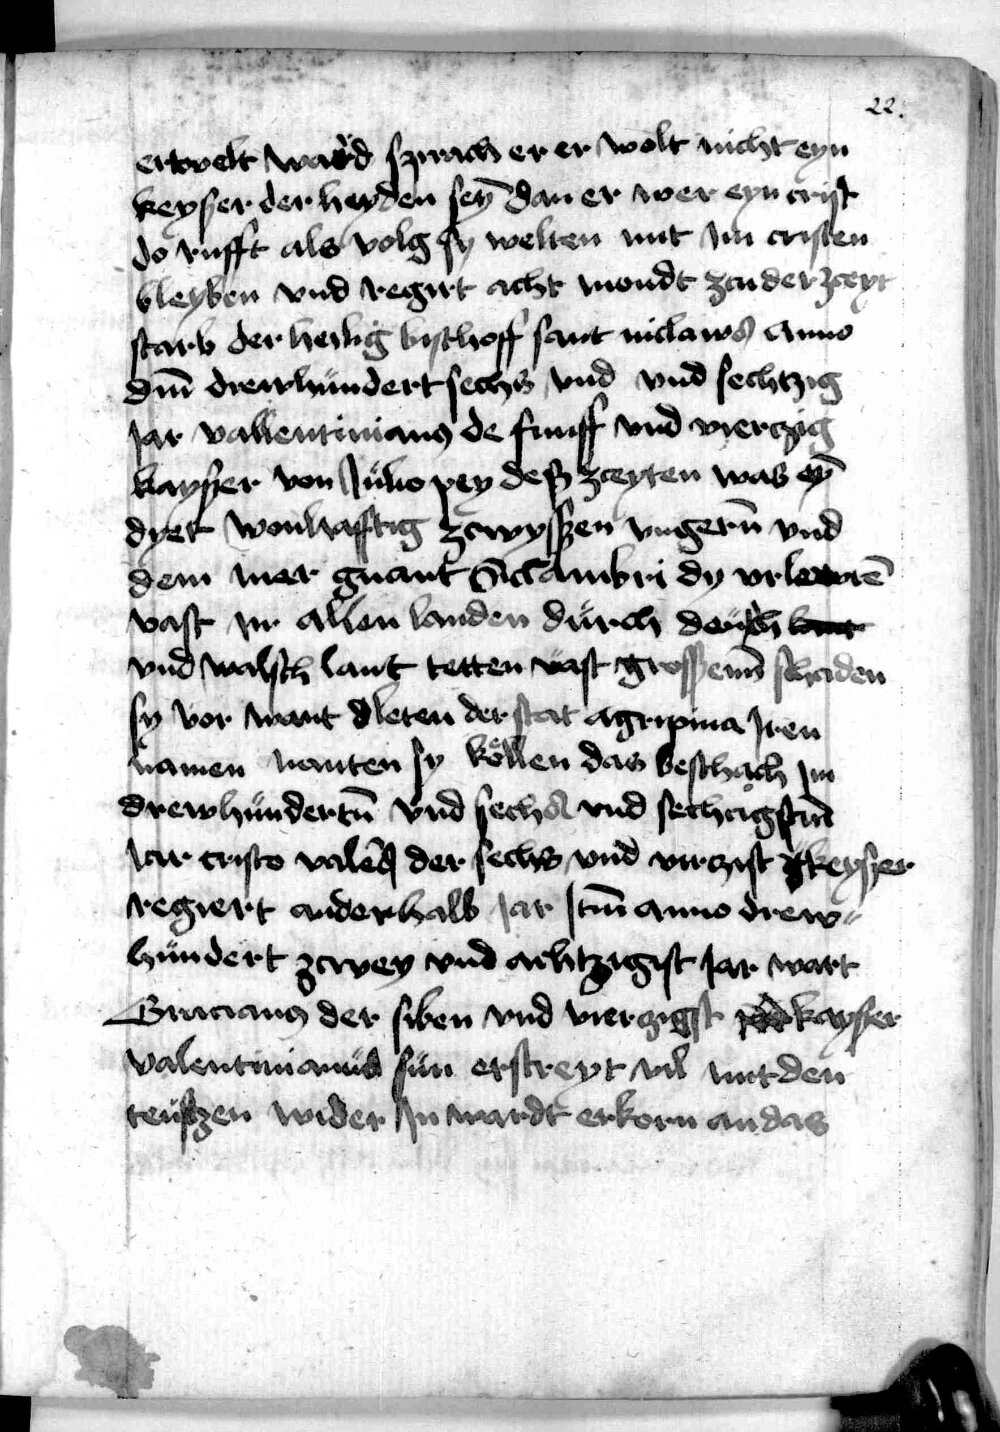 22.
erwelt ward sprach er er wolt nicht eyn
keyser der heyden sey̅ dan er wer eyn crist
do rufft als volg sy welten mit im cristen
bleyben vnd regirt acht mondt zcu der zceyt
starb der heilig bischoff sant niclaws anno
dm̅ drewhundert sechs vnd vnd sechtzig
jar vallentinianus de funff vnd vierczig
kaysser von Julio pey deß zceyten was ey̅
dyet wonhafftig zcwyschen vngern̅ vnd
dem mer gnant Siccambri dy vrlewte̅
vast in allen landen dürch deüsch
vnd walsch lant tetten vast grossenn̅ schaden
sy vor want dleten der stat agripina jren
namen nanten sy köllen das beschach im
drewhündertn̅ vnd sechs vnd sechcigstm̅
Jar cristo vale̅s der sechs vnd virzist keysser
regiert anderhalb jar Itm̅ anno drew
hündert zcwey vnd achtzigist jar wart
Gracianus der siben vnd vierzigst kaysser
valentinianus sün erstreyt vil mit den
teüschen wider in wardt erkorn an das